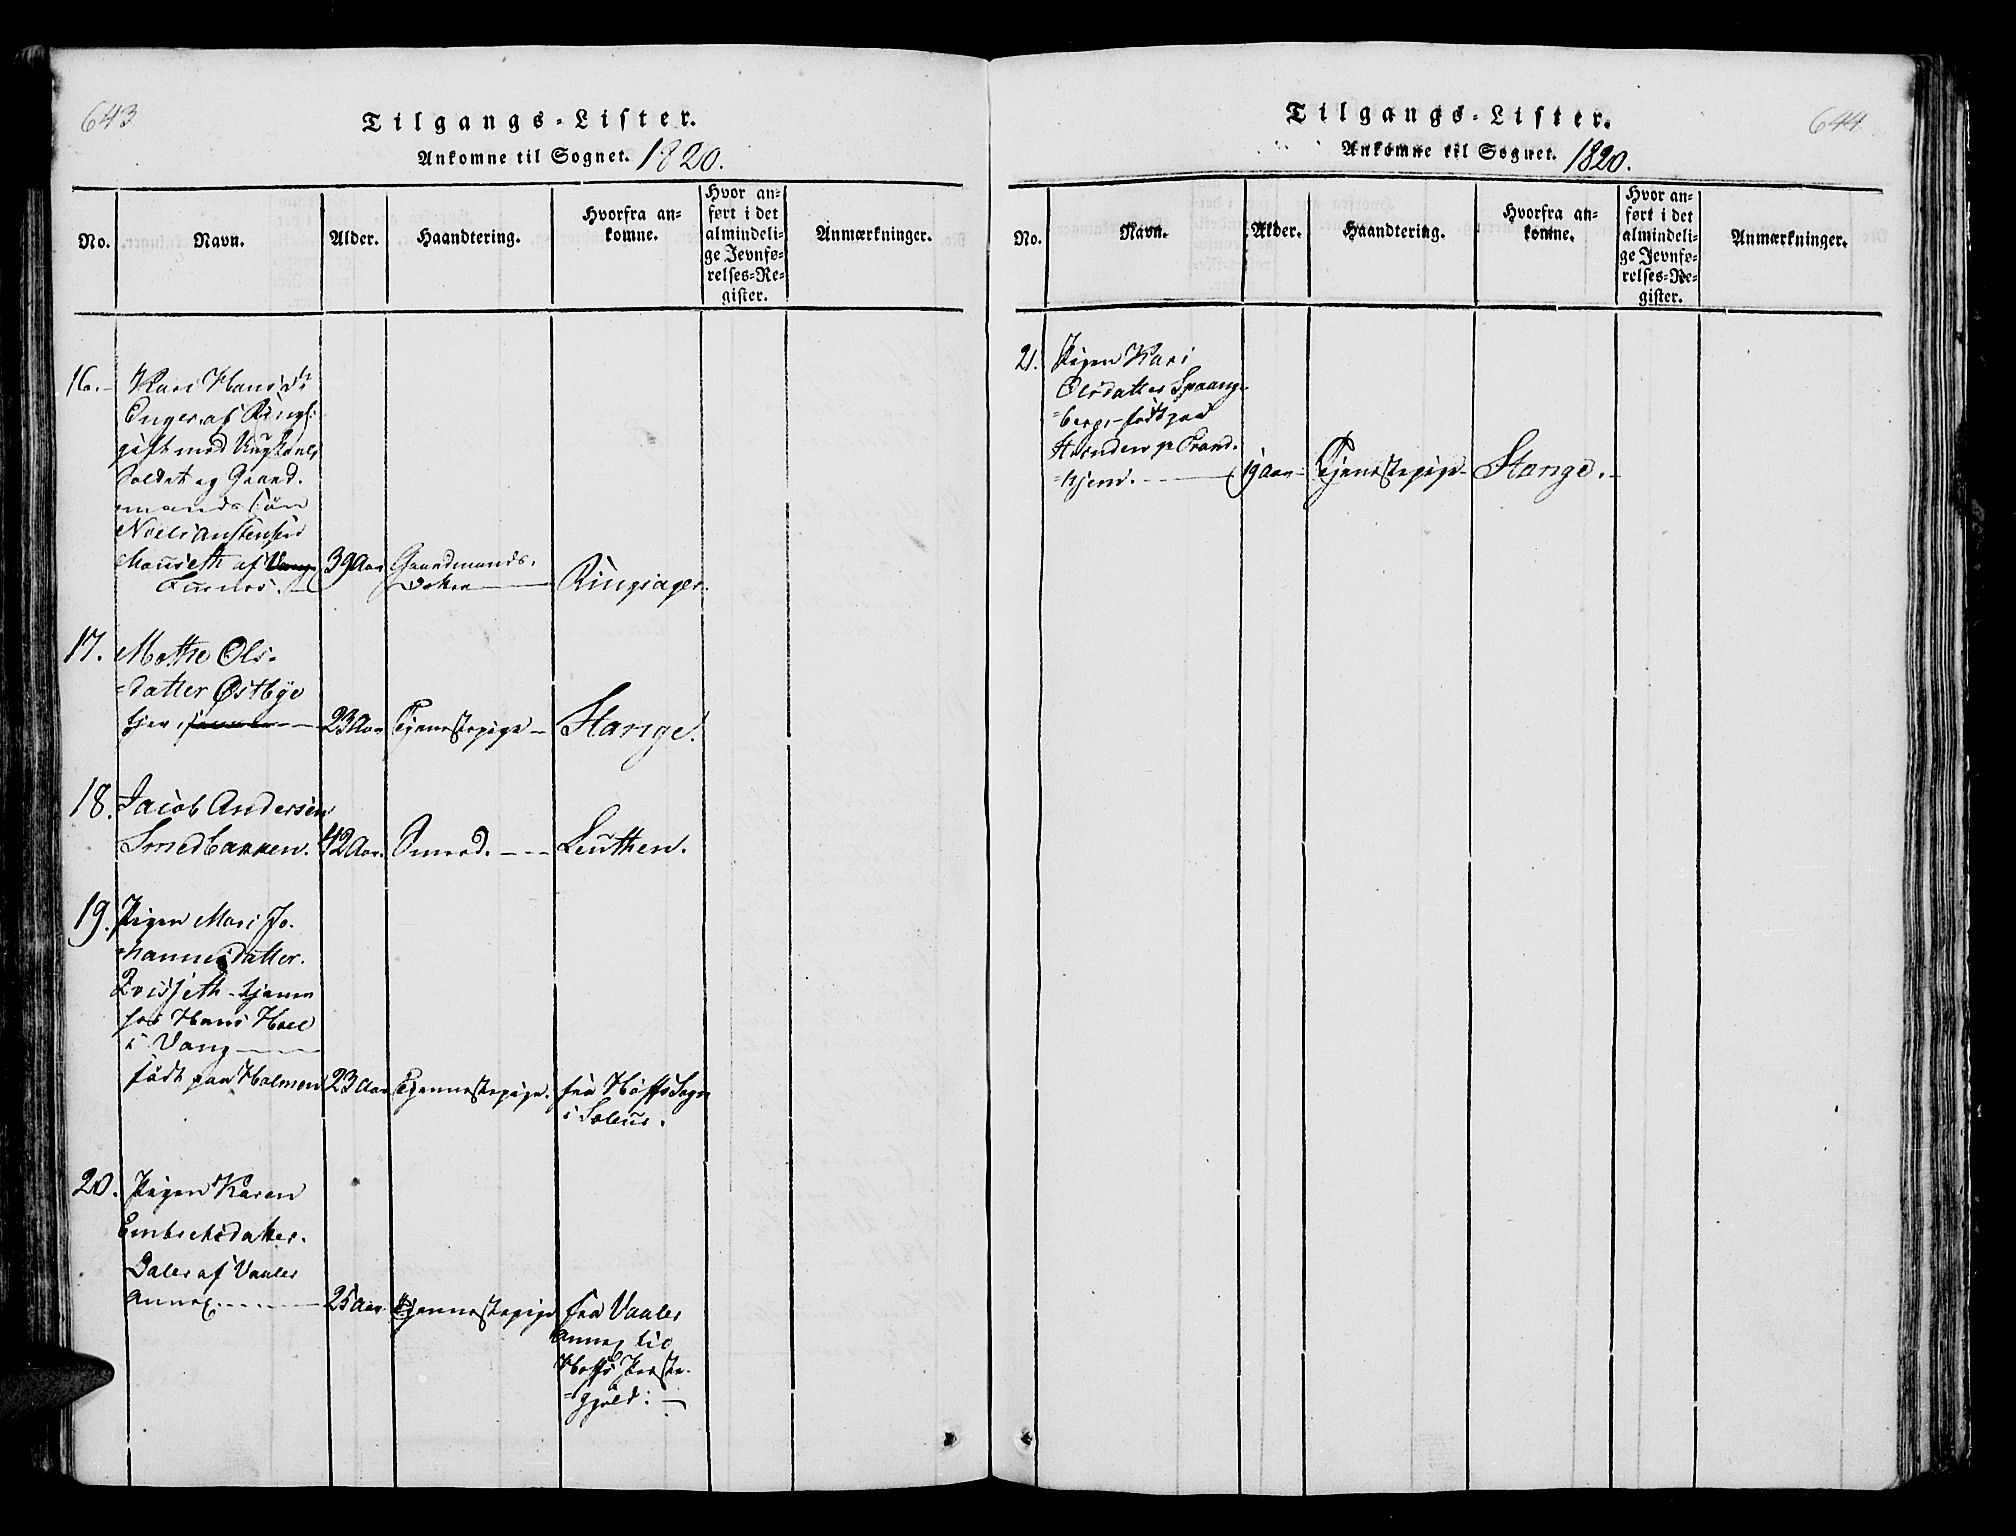 643
Tilgangs-Lister.
Ankomne til Sognet. 1820.
No.
Navn.
Alder.
Haandtering.
Hvorfra an-
komne.
Hvor an-
ført i det
almindeli-
ge Jevnfø-
relses-Re-
gister.
Anmærkninger.
16. Kari Hansdr
Enger af Rings:
gift med
Soldat og Gaard-
mands søn
Niels Austensen
af Vang
Furnes. 39 Aar Gaardmands-
Ringsager.
17. Mathe Ols-
=datter Østbye
tjen 23 Aar Tjenestepige Stange.
18. Jacob Andersen
Smedbakken. 42 Aar. Smed. Leuthen.
19. Pigen Mari Jo-
=hannesdatter
tjener
hos Hans Hoel
i Vang
født paa Holmen 23 Aar Tjennestepige. fra Hoffs Sogn
i Soleur.
20. Pigen Karen
Embrethsdatter
af Vaaler
Annex. 25 Aar Tjennestepige fra Vaaler
Annex til
Hoffs Præste-
=gjeld:
644
Tilgangs-Lister.
Ankomne til Sognet. 1820.
No.
Navn.
Alder.
Haandtering.
Hvorfra an-
komne.
Hvor an-
ført i det
almindeli-
ge Jevnfø-
relses-Re-
gister.
Anmærkninger.
21. Pigen Kari
Olsdatter Spaang-
=berg, født paa
Trond-
=hjem. 19 Aar Tjenestepige Stange.